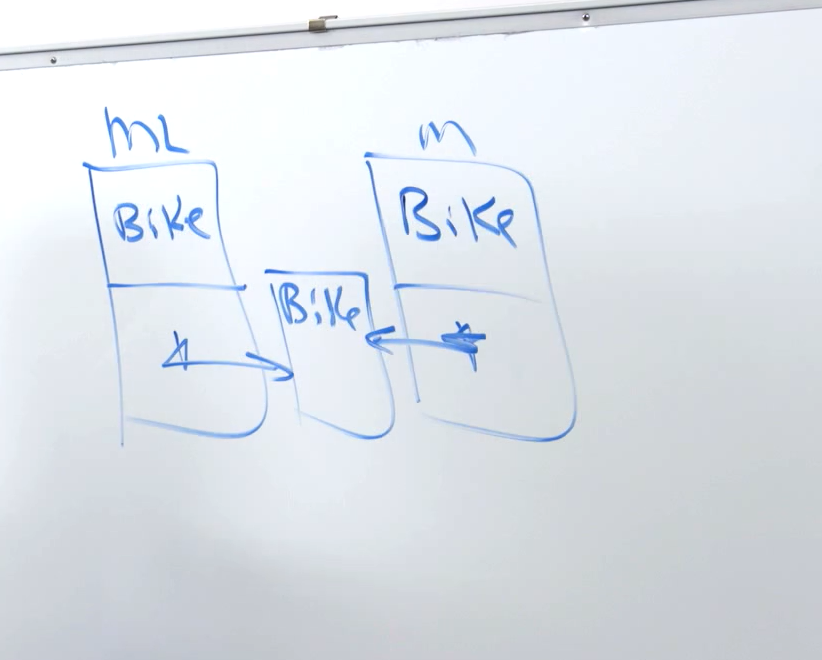 ML
M
Bike
Bike
Bike